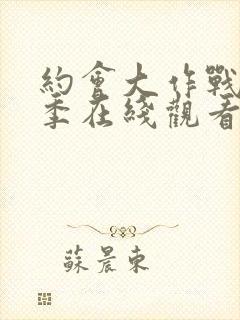 約會大作戰
季在綫觀看
蘇晨東